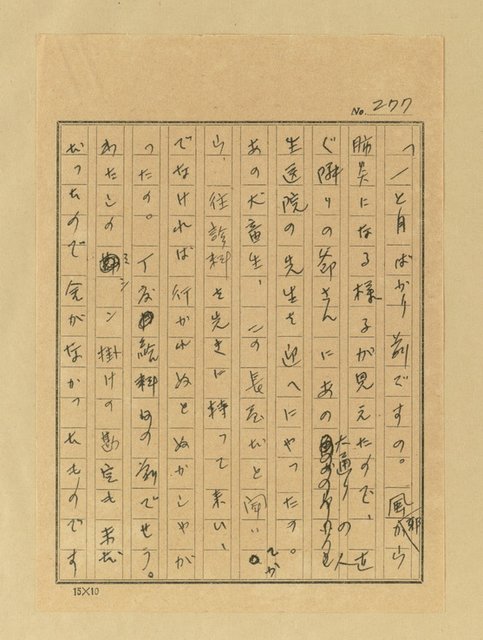 No. 277
「一と月ばかり前ですの。風邪から
肺炎になる様子が見えたので、直
ぐ隣りの鄭さんにあの大通りの人
生医院の先生を迎へにやったの。
あの犬畜生、この長屋だと聞いてか
ら、往診料を先に持って来い、
でなければ行かれぬとぬかしやが
ったの。丁度給料日の前でせう。
わたしのミシン掛けの勘定も未だ
だったので金がなかったものです
15×10